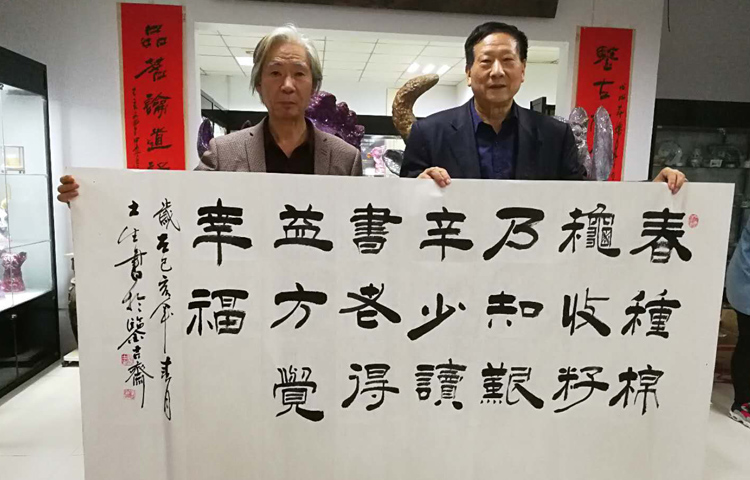 鑒古
春種棉
龝收籽
乃知艱
辛少讀
書老得
益方覺
幸福
歲在己亥年春月
士生書於鑒古齋
品茗論道